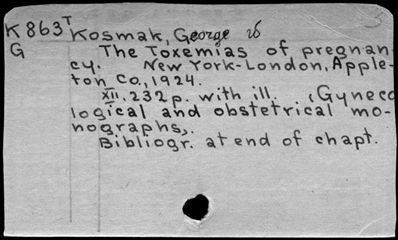 K863T Kosmak, George
G The Toxemias of pregnan
cy. New York-London, Apple-
ton Co., 1924.
XII, 232 p. with ill. (Gyneco
logical and obstetrical mo-
nographs).
Bibliogr. at end of chapt.